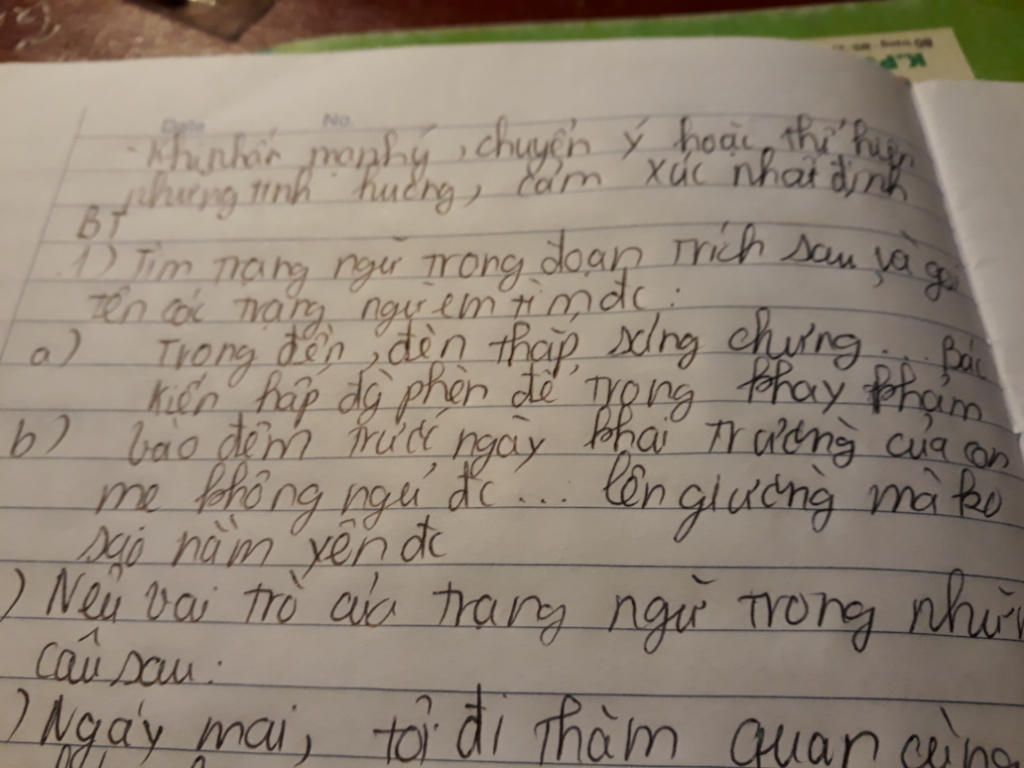 Date No.
- Khi nhấn mạnh ý, chuyển ý hoặc thể hiện
những tình huống, cảm xúc nhất định
BT
1) Tìm trạng ngữ trong đoạn trích sau và gọi
tên các trạng ngữ em tìm đc :
a) Trong đền, đèn thắp sáng chưng... Bác
kiến hấp phèn để trong khay khảm
b) Vào đêm trước ngày khai trường của con
mẹ không ngủ đc ... lên giường mà ko
sao nằm yên đc
) Nêu vai trò của trạng ngữ trong
câu sau :
) Ngày mai, tôi đi thàm quan cùng